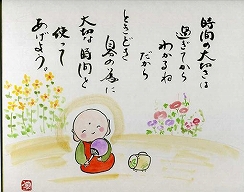 時間の大切さは
過ぎてから
わかるね
だから
ときどき
自分の為に
大切な時間を
使って
あげよう。